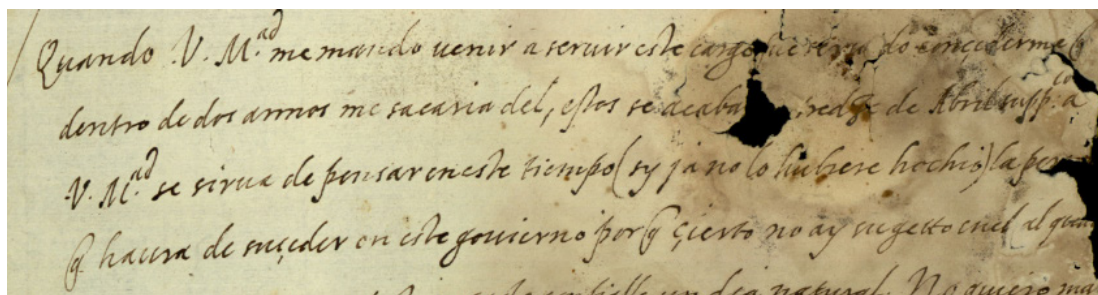 Quando V. M.ad me mando uenir a seruir este cargo fue seruido conçederme q
dentro de dos annos me sacaria del, estos se acaba de Abril supp.co a
V. M.ad se sirua de pensar en este tiempo (sy ja no lo hubiese hechio) la per
q haura de suçeder en este gouierno porq çierto no ay sugetto en el al
un dia natural. No quiero